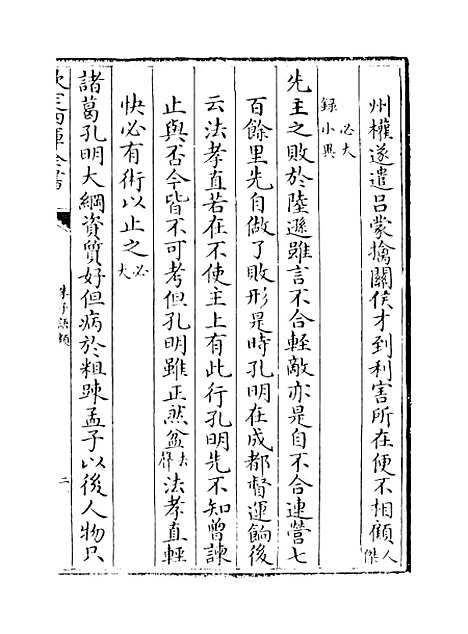 州權遂遣呂蒙擒關侯才到利害所在便不相顧人傑
錄小異必大
先主之敗於陸遜雖言不合輕敵亦是自不合連營七
百餘里先自做了敗形是時孔明在成都督運餉後
云法孝直若在不使主上有此行孔明先不知曾諫
止與否今皆不可考但孔明雖正然盆去聲法孝直輕
快必有術以止之必大
諸葛孔明大綱資質好但病於粗踈孟子以後人物只
欽定四庫全書
朱子語類
二